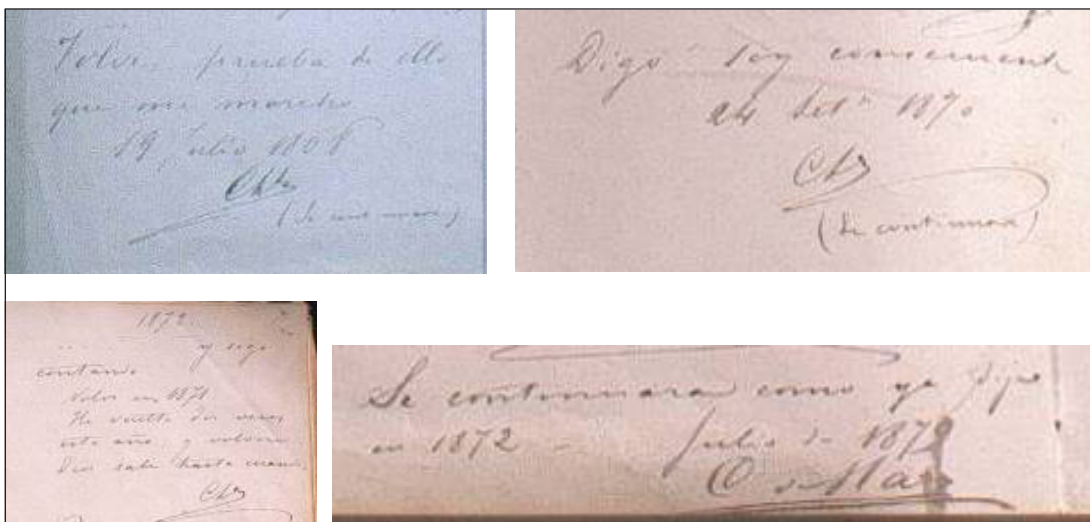 prueba de ello
que me marcho
19 Julio 1868
(Se continuara)
Digo soy consecuente
24 Set.e 1870
(Se continuara)
1872
y sigo
contando
Volví en 1871
He vuelto dos veces
este año y volveré
Dios sabe hasta cuando
Se continuara como ya dije
en 1872 - Julio de 1879